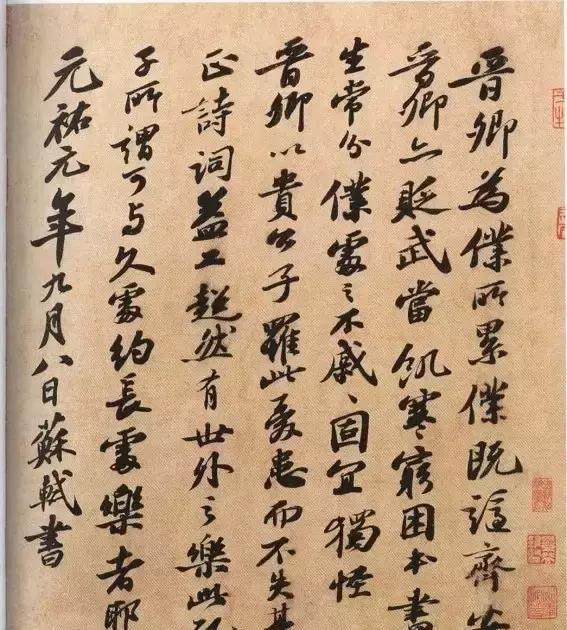 晉卿為僕所累僕既謫齊安
晉卿亦貶武當飢寒窮困本書
生常分僕處之不戚戚固宜獨怪
晉卿以貴公子罹此憂患而不失其
正詩詞益工超然有世外之樂此
子所謂可與久處約長處樂者耶
元祐元年九月八日蘇軾書